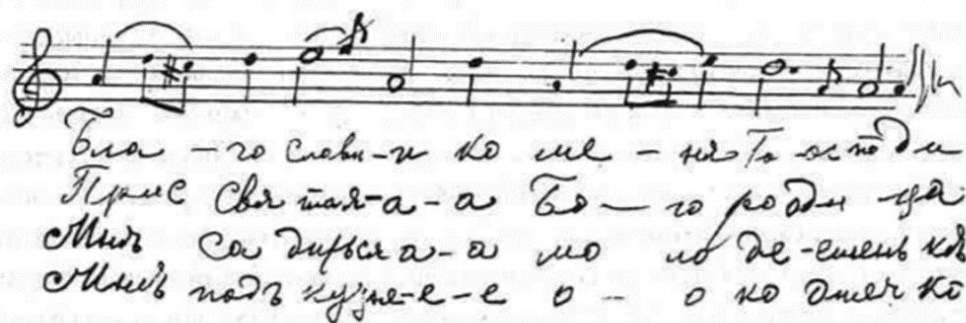 Бла - го слови-и ко ме - ня Го-осподи
Пре свя тая-а-а Бо - го роди ца
Мнѣ са дитьса-а-а мо ло де-шенькѣ
Мнѣ подъ кутне-е-е о - о ко шечко